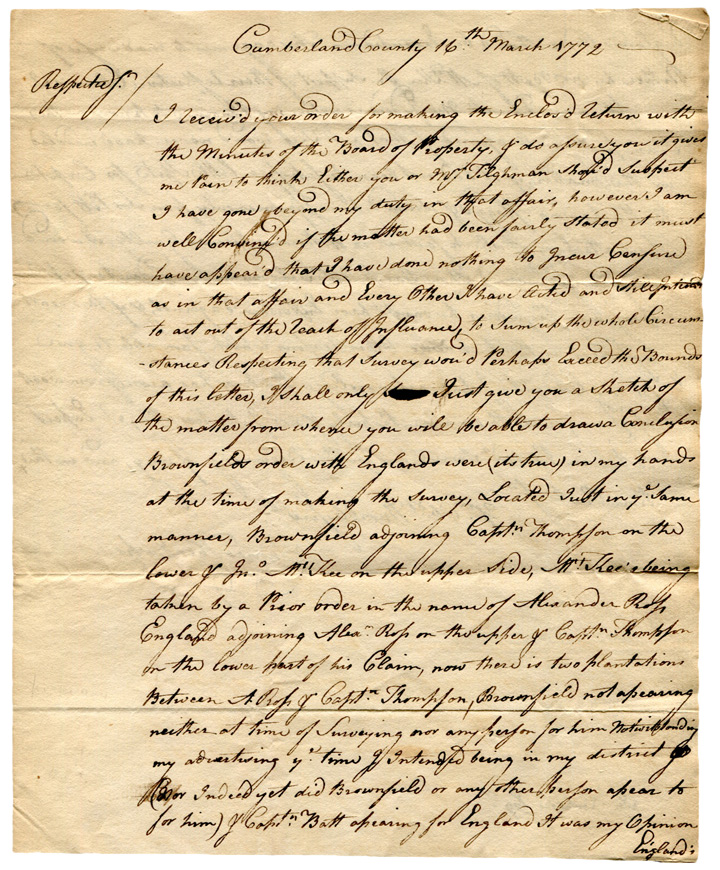 Cumberland County 16th March 1772
Respected Sr.
I receiv'd your order for making the Enclos'd Return with
the Minutes of the Board of Property, & do assure you it gives
me Pain to think Either you or Mr Tilghman Shou'd Suspect
I have gone beyond my duty in that affair, however I am
well Convinc'd if the matter had been fairly Stated it must
have appear'd that I have done nothing to Incur Censure
as in that affair and Every Other I have Acted and Still Intend
to act out of the Reach of Influance, to Sum up the whole Circum-
-stances Respecting that Survey wou'd Perhaps Exceed the Bounds
of this letter, I Shall only Just give you a Sketch of
the matter from whence you will be able to draw a Conclusion
Brownfields order with Englands were (its true) in my hands
at the time of making the Survey, Located Just in ye. Same
manner, Brownfield adjoining Captn. Thompson on the
lower & Jno. McKee on the upper Side, McKee's being
taken by a Prior order in the name of Alexander Ross
England adjoining Alexr. Ross on the upper & Captn. Thompson
on the lower part of his Claim, now there is two plantations
Between A Ross & Captn. Thompson, Brownfield not apearing
neither at time of Surveying nor any person for him Notwithstanding
my advertising ye. time I Intended being in my district
(Nor Indeed yet did Brownfield or any other person apear to
for him) & Captn. Batt apearing for England It was my Opinion
England's